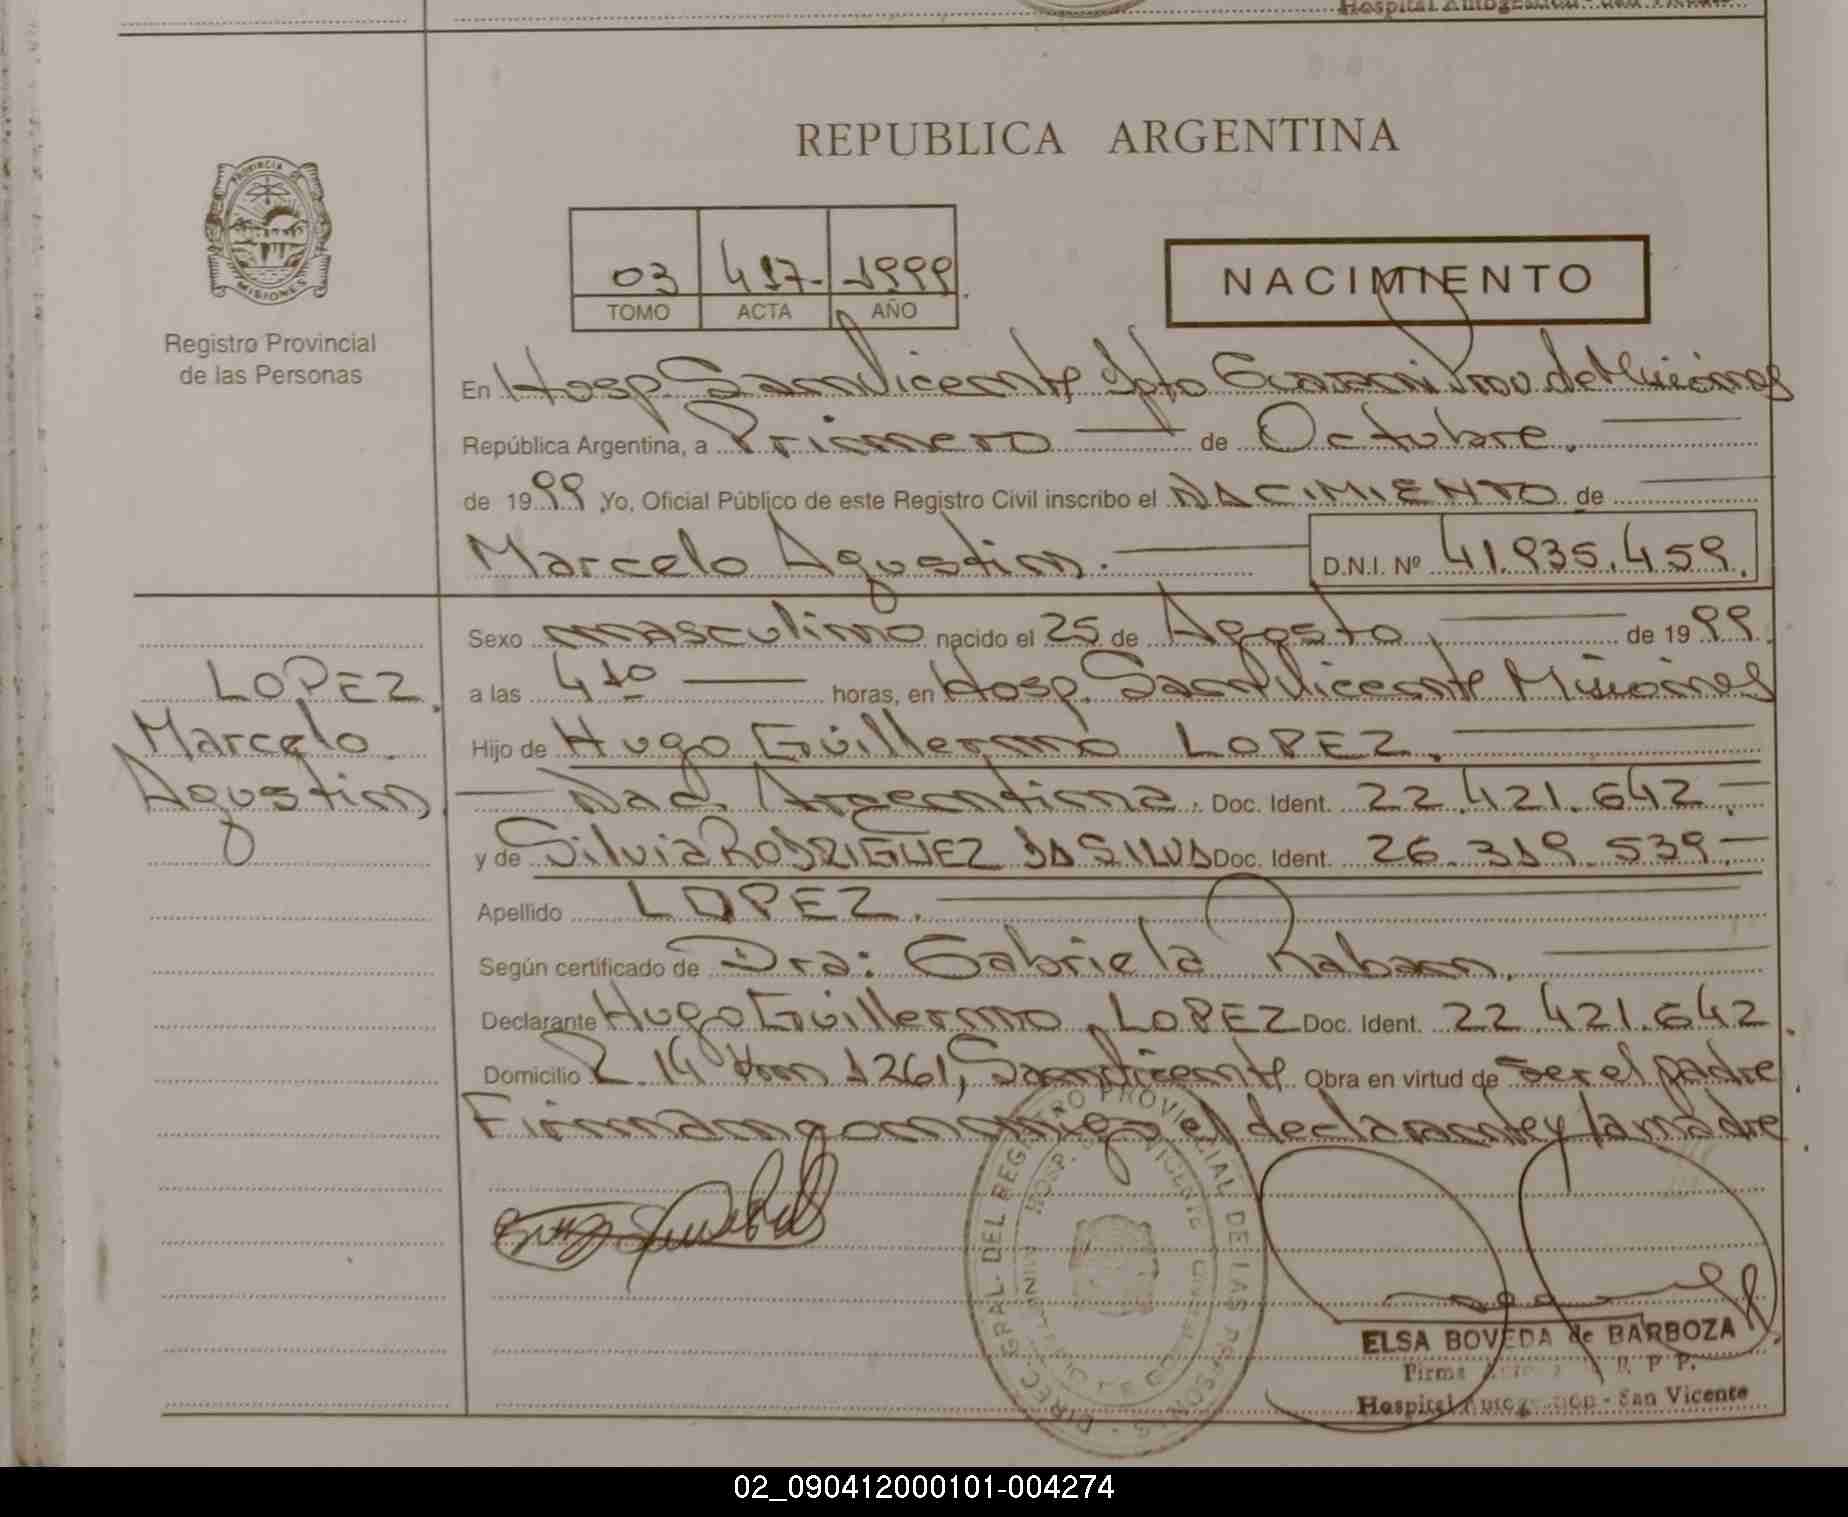 Hospital Autogestion - San Vicente
REPUBLICA ARGENTINA
PROVINCIA DE MISIONES
03 417- 1999
TOMO ACTA AÑO
NACIMIENTO
Registro Provincial
de las Personas
En Hosp. San Vicente Dpto Guarani Prov. de Misiones
República Argentina, a Primero de Octubre.
de 1999 ,Yo, Oficial Público de este Registro Civil inscribo el NACIMIENTO de
Marcelo Agustin. D.N.I. Nº 41.935.459.
Sexo masculino nacido el 25 de Agosto, de 1999.
a las 4 10 horas, en Hosp. San Vicente Misiones
Hijo de Hugo Guillermo LOPEZ.
Nac. Argentina. Doc. Ident. 22.421.642.-
y de Silvia RODRIGUEZ DA SILVA Doc. Ident. 26.319.539.-
Apellido LOPEZ.
Según certificado de Dra: Gabriela
Declarante Hugo Guillermo LOPEZ Doc. Ident. 22.421.642.
Domicilio R. 14 Km 1261, San Vicente Obra en virtud de ser el padre.
Firman conmigo el declarante y la madre.
LOPEZ.
Marcelo
Agustin.
DIREC. GRAL. DEL REGISTRO PROVINCIAL DE LAS PERSONAS
ELSA BOVEDA de BARBOZA
Firma R. P. P.
Hospital Autogestion - San Vicente
02_090412000101-004274